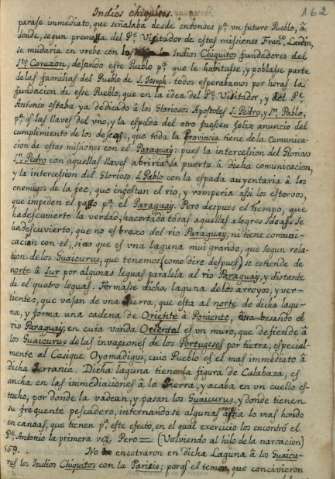 Indios Chiquitos 162
parage inmediato, que señalaba desde entonces pª. un futuro Pueblo, à
donde, segun promessa del Pe. Visitador de estas missiones Franco. Lardin,
se mudaria en breve con los Indios Chiquitos fundadores del
Sto. Corazon, dejando este Pueblo pª. que le habitasse, y poblasse parte
de las familias del Pueblo de S. Joseph. todos esperabamos por horas la
fundacion de este Pueblo, que en la idea del Pe. Visitador, y del Pe.
Antonio estaba ya dedicado à los gloriosos Apostoles S. Pedro, y S. Pablo,
pª. que las llaves del vno, y la espada del otro fuessen feliz anuncio del
cumplimiento de los deseos, que toda la Provincia tiene de la comunica-
cion de estas misiones con el Paraguay: pues la intercession del glorioso
S. Pedro con aquellas llaves abriria la puerta à dicha comunicacion,
y la intercession del glorioso S. Pablo con la espada auyentaria à los
enemigos de la fee, que infestan el rio, y romperia assi los estorvos,
que impeden el passo pª. el Paraguay. Pero despues el tiempo, que
ha descubierto la verdad, ha cortado todas aquellas alegres ideas. Se
ha descubierto, que no es brazo del rio Paraguay, ni tiene comuni-
cacion con el, sino que es vna laguna mui grande, que segun rela-
tion de los Guaicurus, que tenemos (como dire despues) se estiende de
norte à sur por algunas leguas paralela al rio Paraguay, y distante
de el quatro leguas. Formase dicha laguna de los arroyos, y ver-
tientes, que vajan de vna sierra, que esta al norte de dicha lagu-
na, y forma una cadena de Oriente à Poniente, besando el
rio Paraguay, en cuia vanda Oriental es vn muro, que defiende à
los Guaicurus de las invasiones de los Portugeses por tierra, especial-
mente al Cazique Oyomadigui, cuio Pueblo es el mas inmediato à
dicha serrania. Dicha laguna tiene la figura de Calabaza, es
ancha en las immediaciones à la sierra, y acaba en vn cuello es-
trecho, por donde la vadean, y passan los Guaicurus, y donde tienen
su frequente pescadero, internandose algunas à lo mas hondo
en canoas, que tienen pª. este efeto, en el qual exercicio los encontró el
Pe. Antonio la primera vez. Pero (Volviendo al hilo de la narracion)
159. No encotraron en dicha Laguna à los Guaicu-
rus los Indios Chiquitos con la Panzis; pero el temor, que concivieron